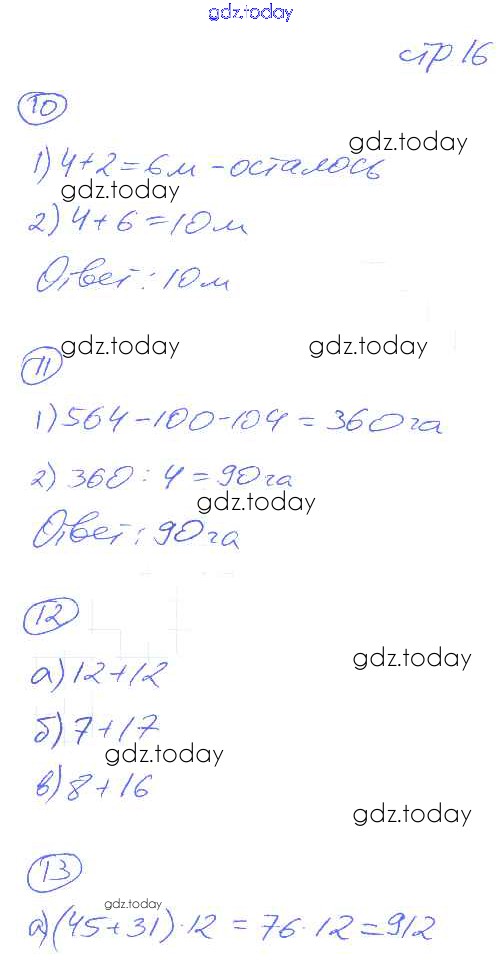 gdz.today
стр 16
10
gdz.today
1) 4+2=6м - осталось
gdz.today
2) 4+6=10м
Ответ: 10м
gdz.today gdz.today
11
1) 564-100-104=360га
2) 360:4=90га
gdz.today
Ответ: 90га
12
gdz.today
а) 12+12
б) 7+17
gdz.today
в) 8+16
gdz.today
13
gdz.today
а) (45+31)·12=76·12=912